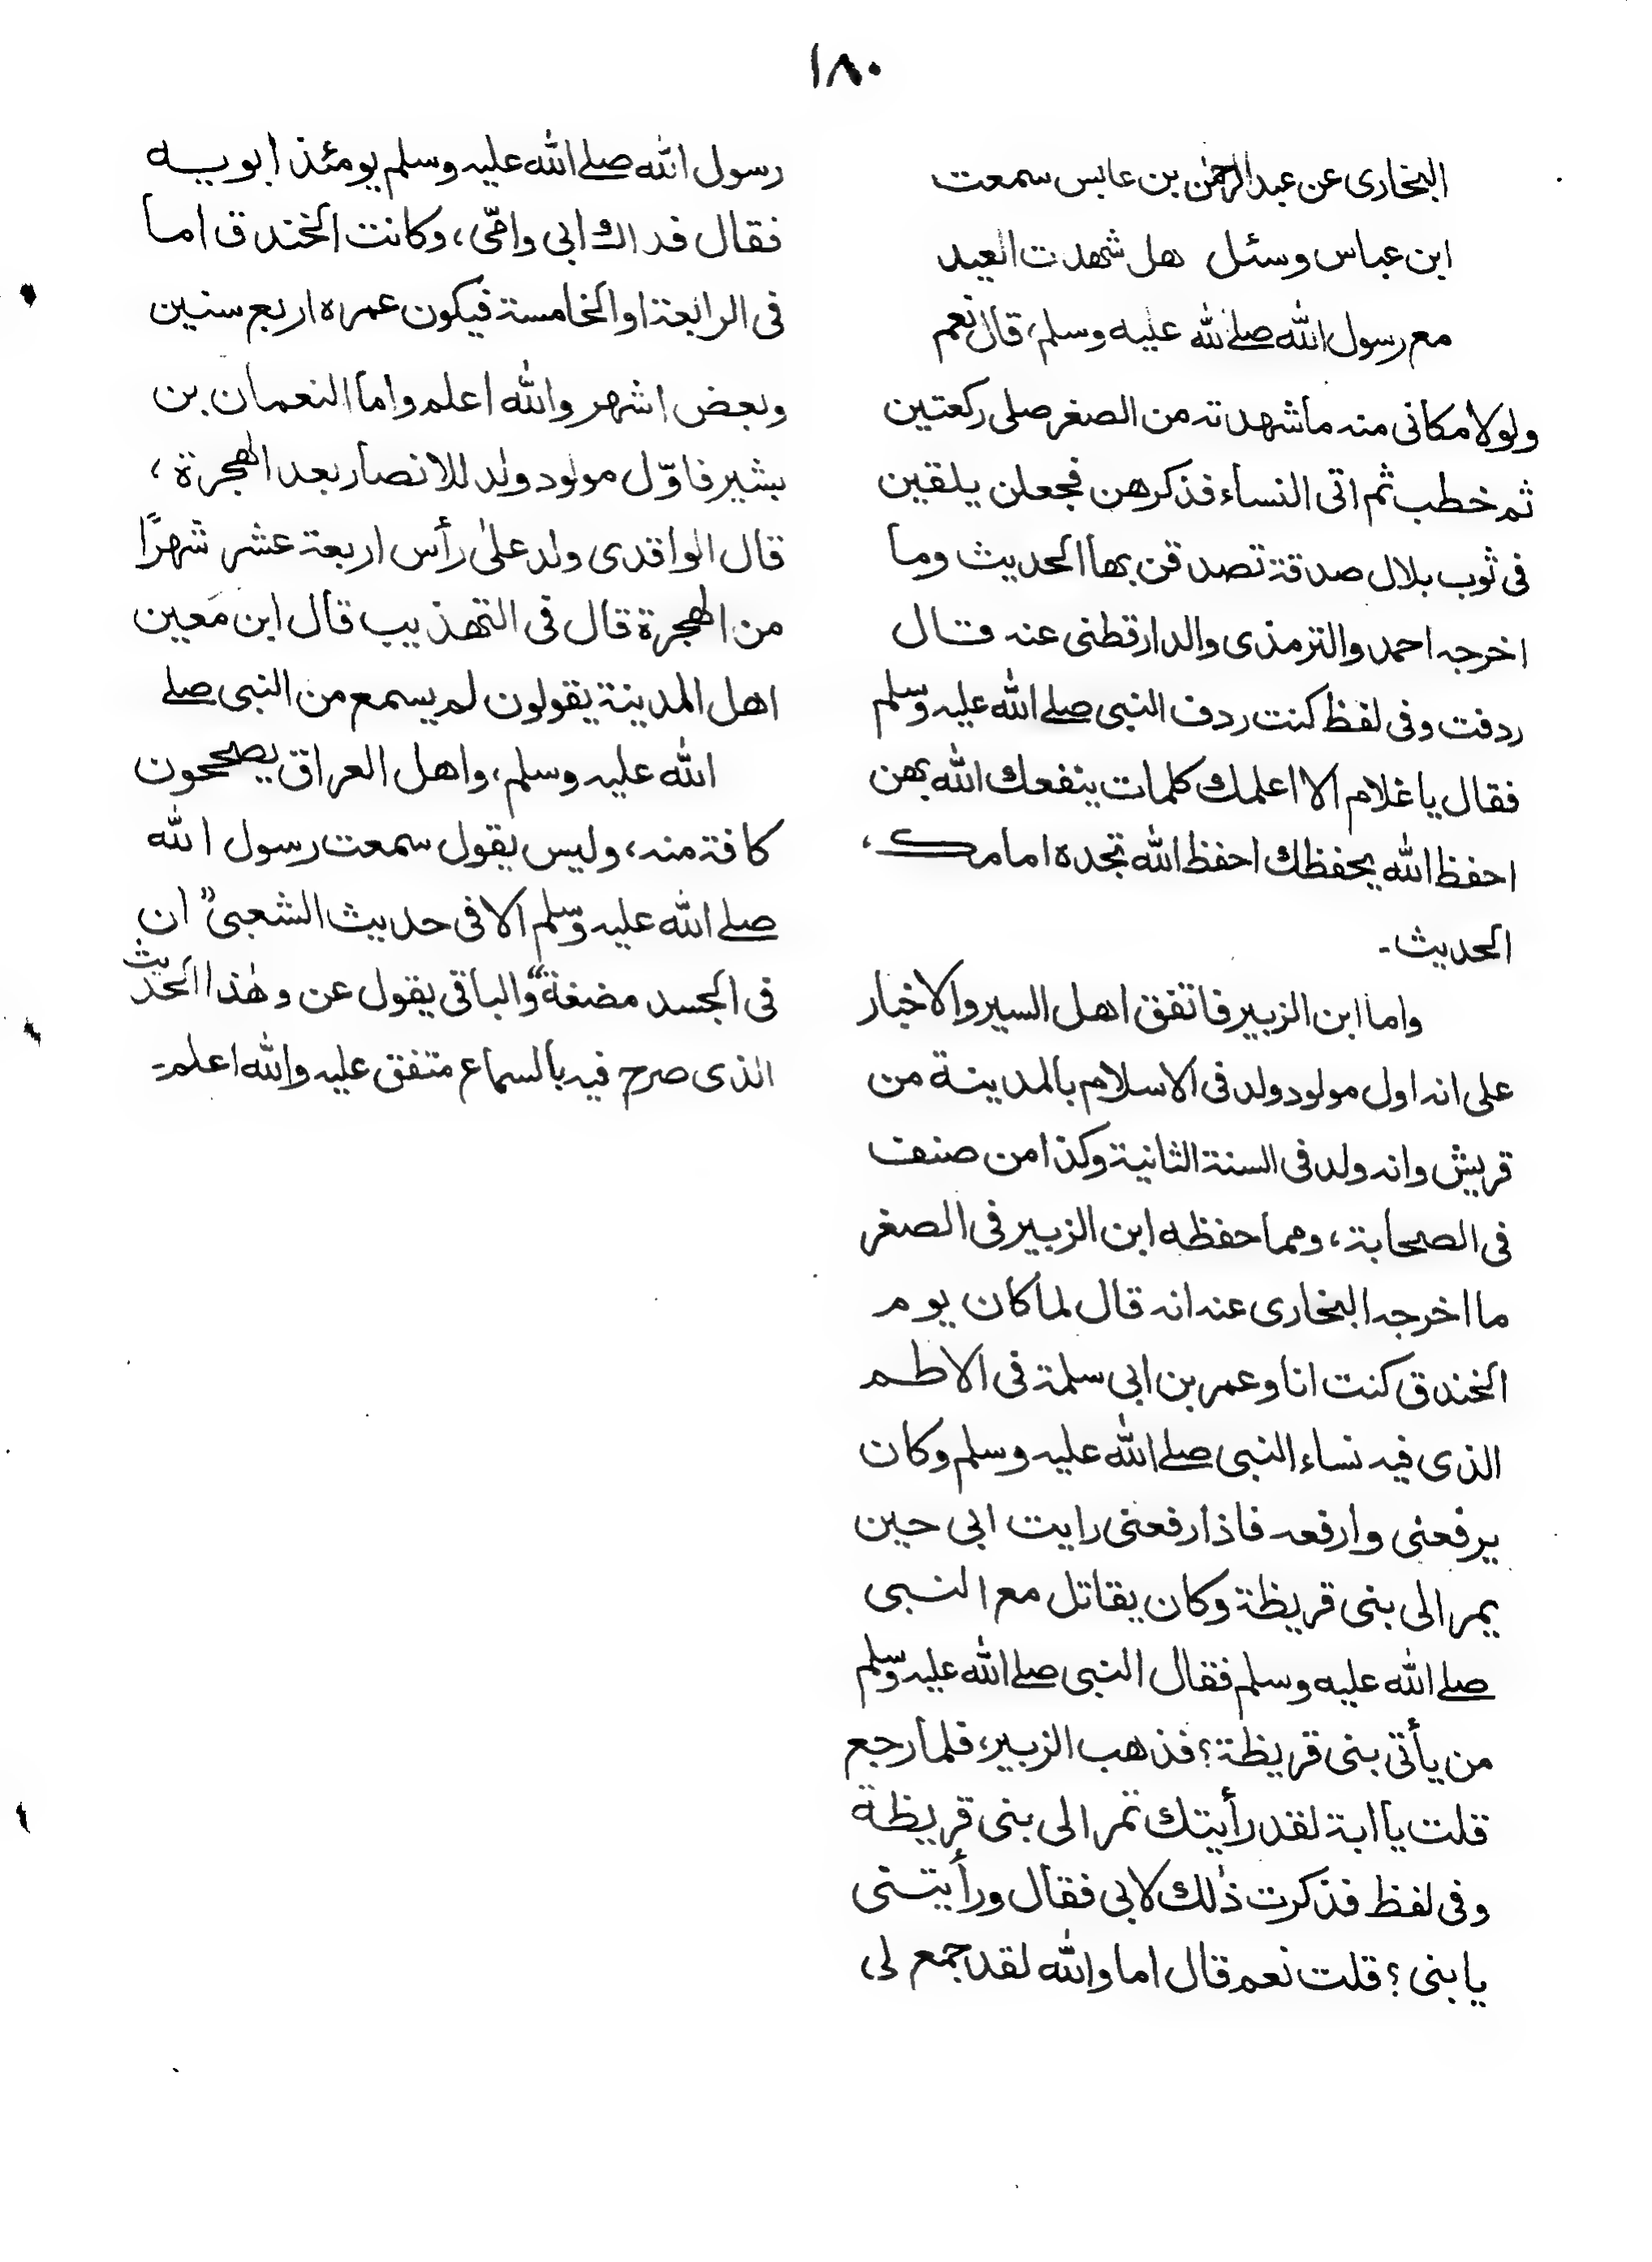 ١٨٠
البخاری عن عبد الرحمٰن بن عابس سمعت
ابن عباس وسئل هل شهدت العید
مع رسول الله صلے الله علیه وسلم، قال نعم
ولولا مکانی منه ما شهدته من الصغر صلی رکعتین
ثم خطب ثم اتی النساء فذکرهن فجعلن یلقین
فی ثوب بلال صدقة تصدقن بها الحدیث وما
اخرجه احمد والترمذی والدارقطنی عنه قال
ردفت وفی لفظ کنت ردف النبی صلے الله علیه وسلم
فقال یا غلام الا اعلمك کلمات ینفعك الله بهن
احفظ الله یحفظك احفظ الله تجده امامك،
الحدیث۔
واما ابن الزبیر فاتفق اهل السیر والاخبار
علی انه اول مولود ولد فی الاسلام بالمدینة من
قریش وانه ولد فی السنة الثانیة وکذا من صنف
فی الصحابة، ومما حفظه ابن الزبیر فی الصغر
ما اخرجه البخاری عنه انه قال لما کان یوم
الخندق کنت انا وعمر بن ابی سلمة فی الاطم
الذی فیه نساء النبی صلے الله علیه وسلم وکان
یرفعنی وارفعه فاذا رفعنی رایت ابی حین
یمر الی بنی قریظة وکان یقاتل مع النبی
صلے الله علیه وسلم فقال النبی صلے الله علیه وسلم
من یأتی بنی قریظة؟ فذهب الزبیر، فلما رجع
قلت یا ابة لقد رأیتك تمر الی بنی قریظة
وفی لفظ فذکرت ذٰلك لابی فقال ورأیتنی
یا بنی؟ قلت نعم قال اما والله لقد جمع لی
رسول الله صلے الله علیه وسلم یومئذ ابویه
فقال فداك ابی وامّی، وکانت الخندق اما
فی الرابعة او الخامسة فیکون عمره اربع سنین
وبعض اشهر والله اعلم واما النعمان بن
بشیر فاوّل مولود ولد للانصار بعد الهجرة،
قال الواقدی ولد علیٰ رأس اربعة عشر شهرًا
من الهجرة قال فی التهذیب قال ابن مَعین
اهل المدینة یقولون لم یسمع من النبی صلے
الله علیه وسلم، واهل العراق یصححون
کافة منه، ولیس یقول سمعت رسول الله
صلے الله علیه وسلم الا فی حدیث الشعبی" ان
فی الجسد مضغة" والباقی یقول عن وهٰذا الحدیث
الذی صرح فیه بالسماع متفق علیه والله اعلم۔